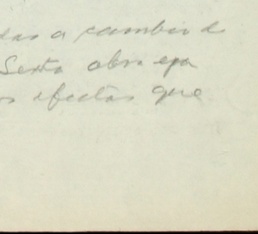 das a cambio d
Sexta obra epa
os efectos que